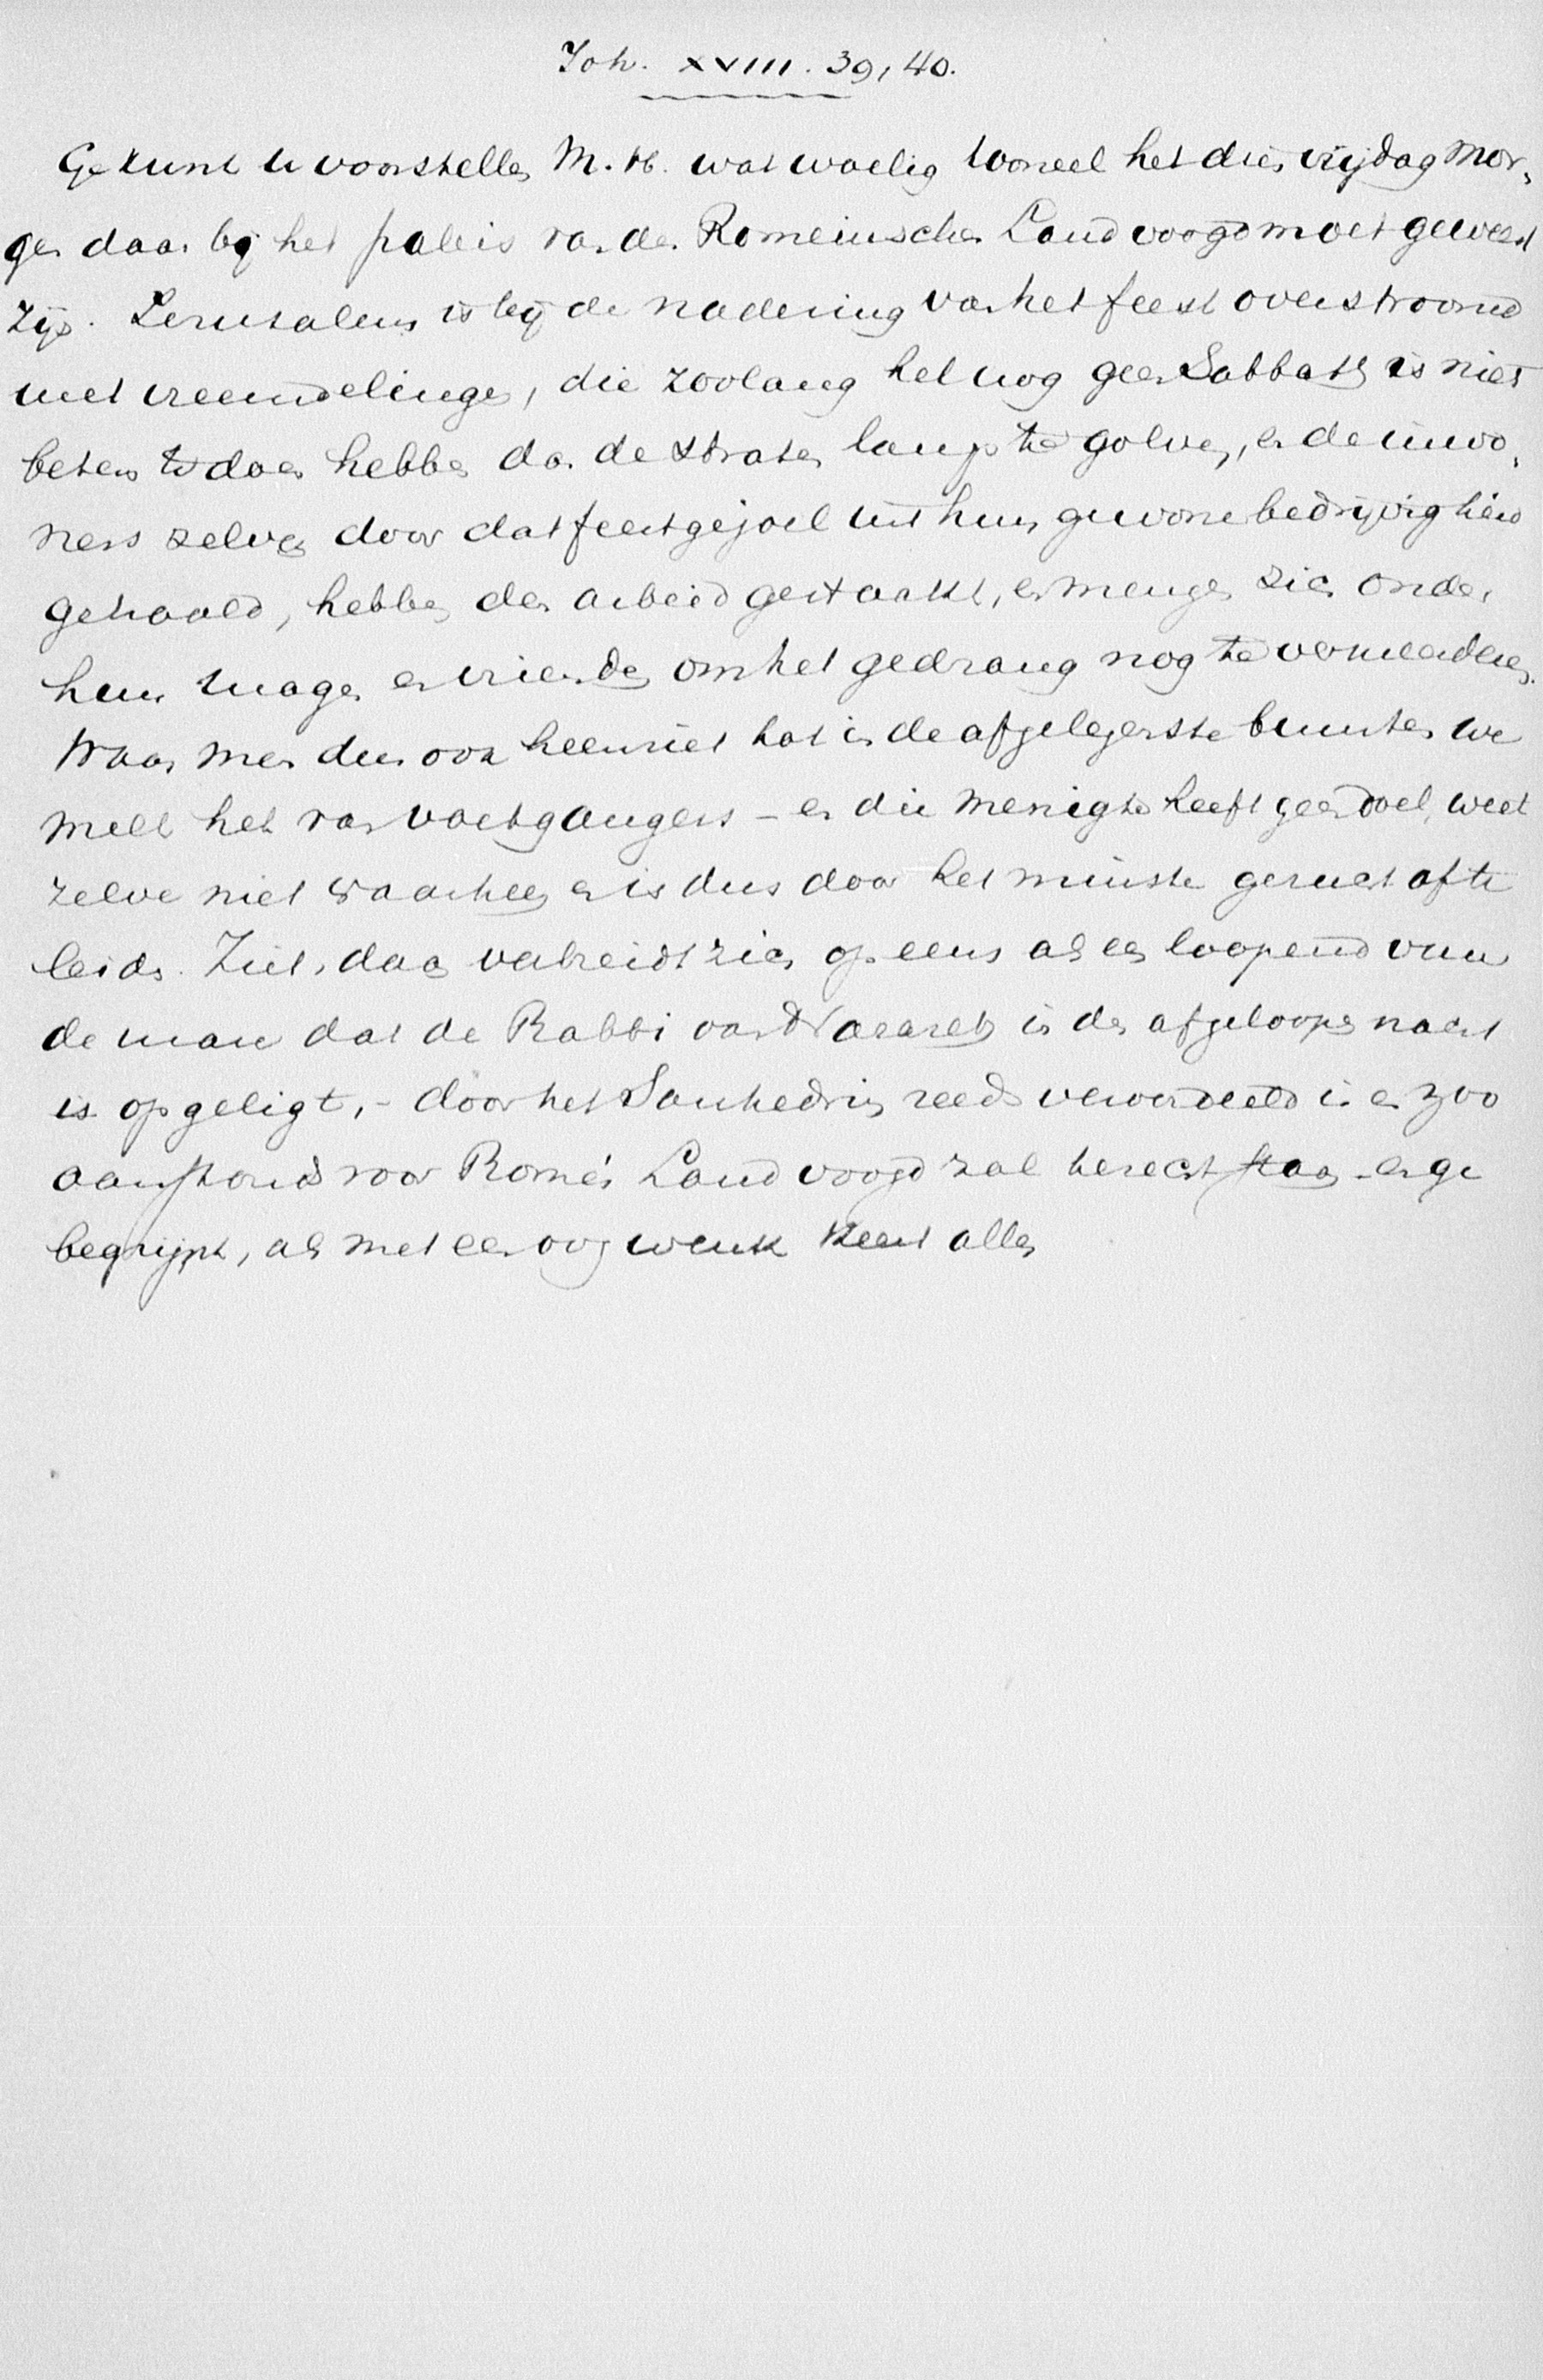 Joh. XVIII. 39, 40.
Ge kunt u voorstellen M. H. wat woelig tooneel het dien vrijdag mor-
gen daar bij het paleis van den Romeinschen Landvoogd moet geweest
zijn. Jerusalem is bij de nadering van het feest overstroomd
met vreemdelingen, die zoolang het nog geen Sabbath is niet
beters te doen hebben dan de straten langs te golven, en de inwo-
ners zelven door dat feestgejoel uit hun gewone bedrijvigheid
gehaald, hebben den arbeid gestaakt, en mengen zich onder
hun magen en vrienden om het gedrang nog te vermeerderen.
Waar men dus ook heenziet tot in de afgelegenste buurten we
melt het van voetgangers - en die menigte heeft geen doel, weet
zelve niet waarheen en is dus door het minste gerucht af te
leiden. Ziet, daar verbreidt zich op eens als een loopend vuur
de mare dat de Rabbi van Nazareth in den afgeloopen nacht
is opgeligt, - door het Sanhedrin reeds veroordeeld is en zoo
aanstonds voor Rome's Landvoogd zal terecht staan - en ge
begrijpt, als met een oogwenk keert alles